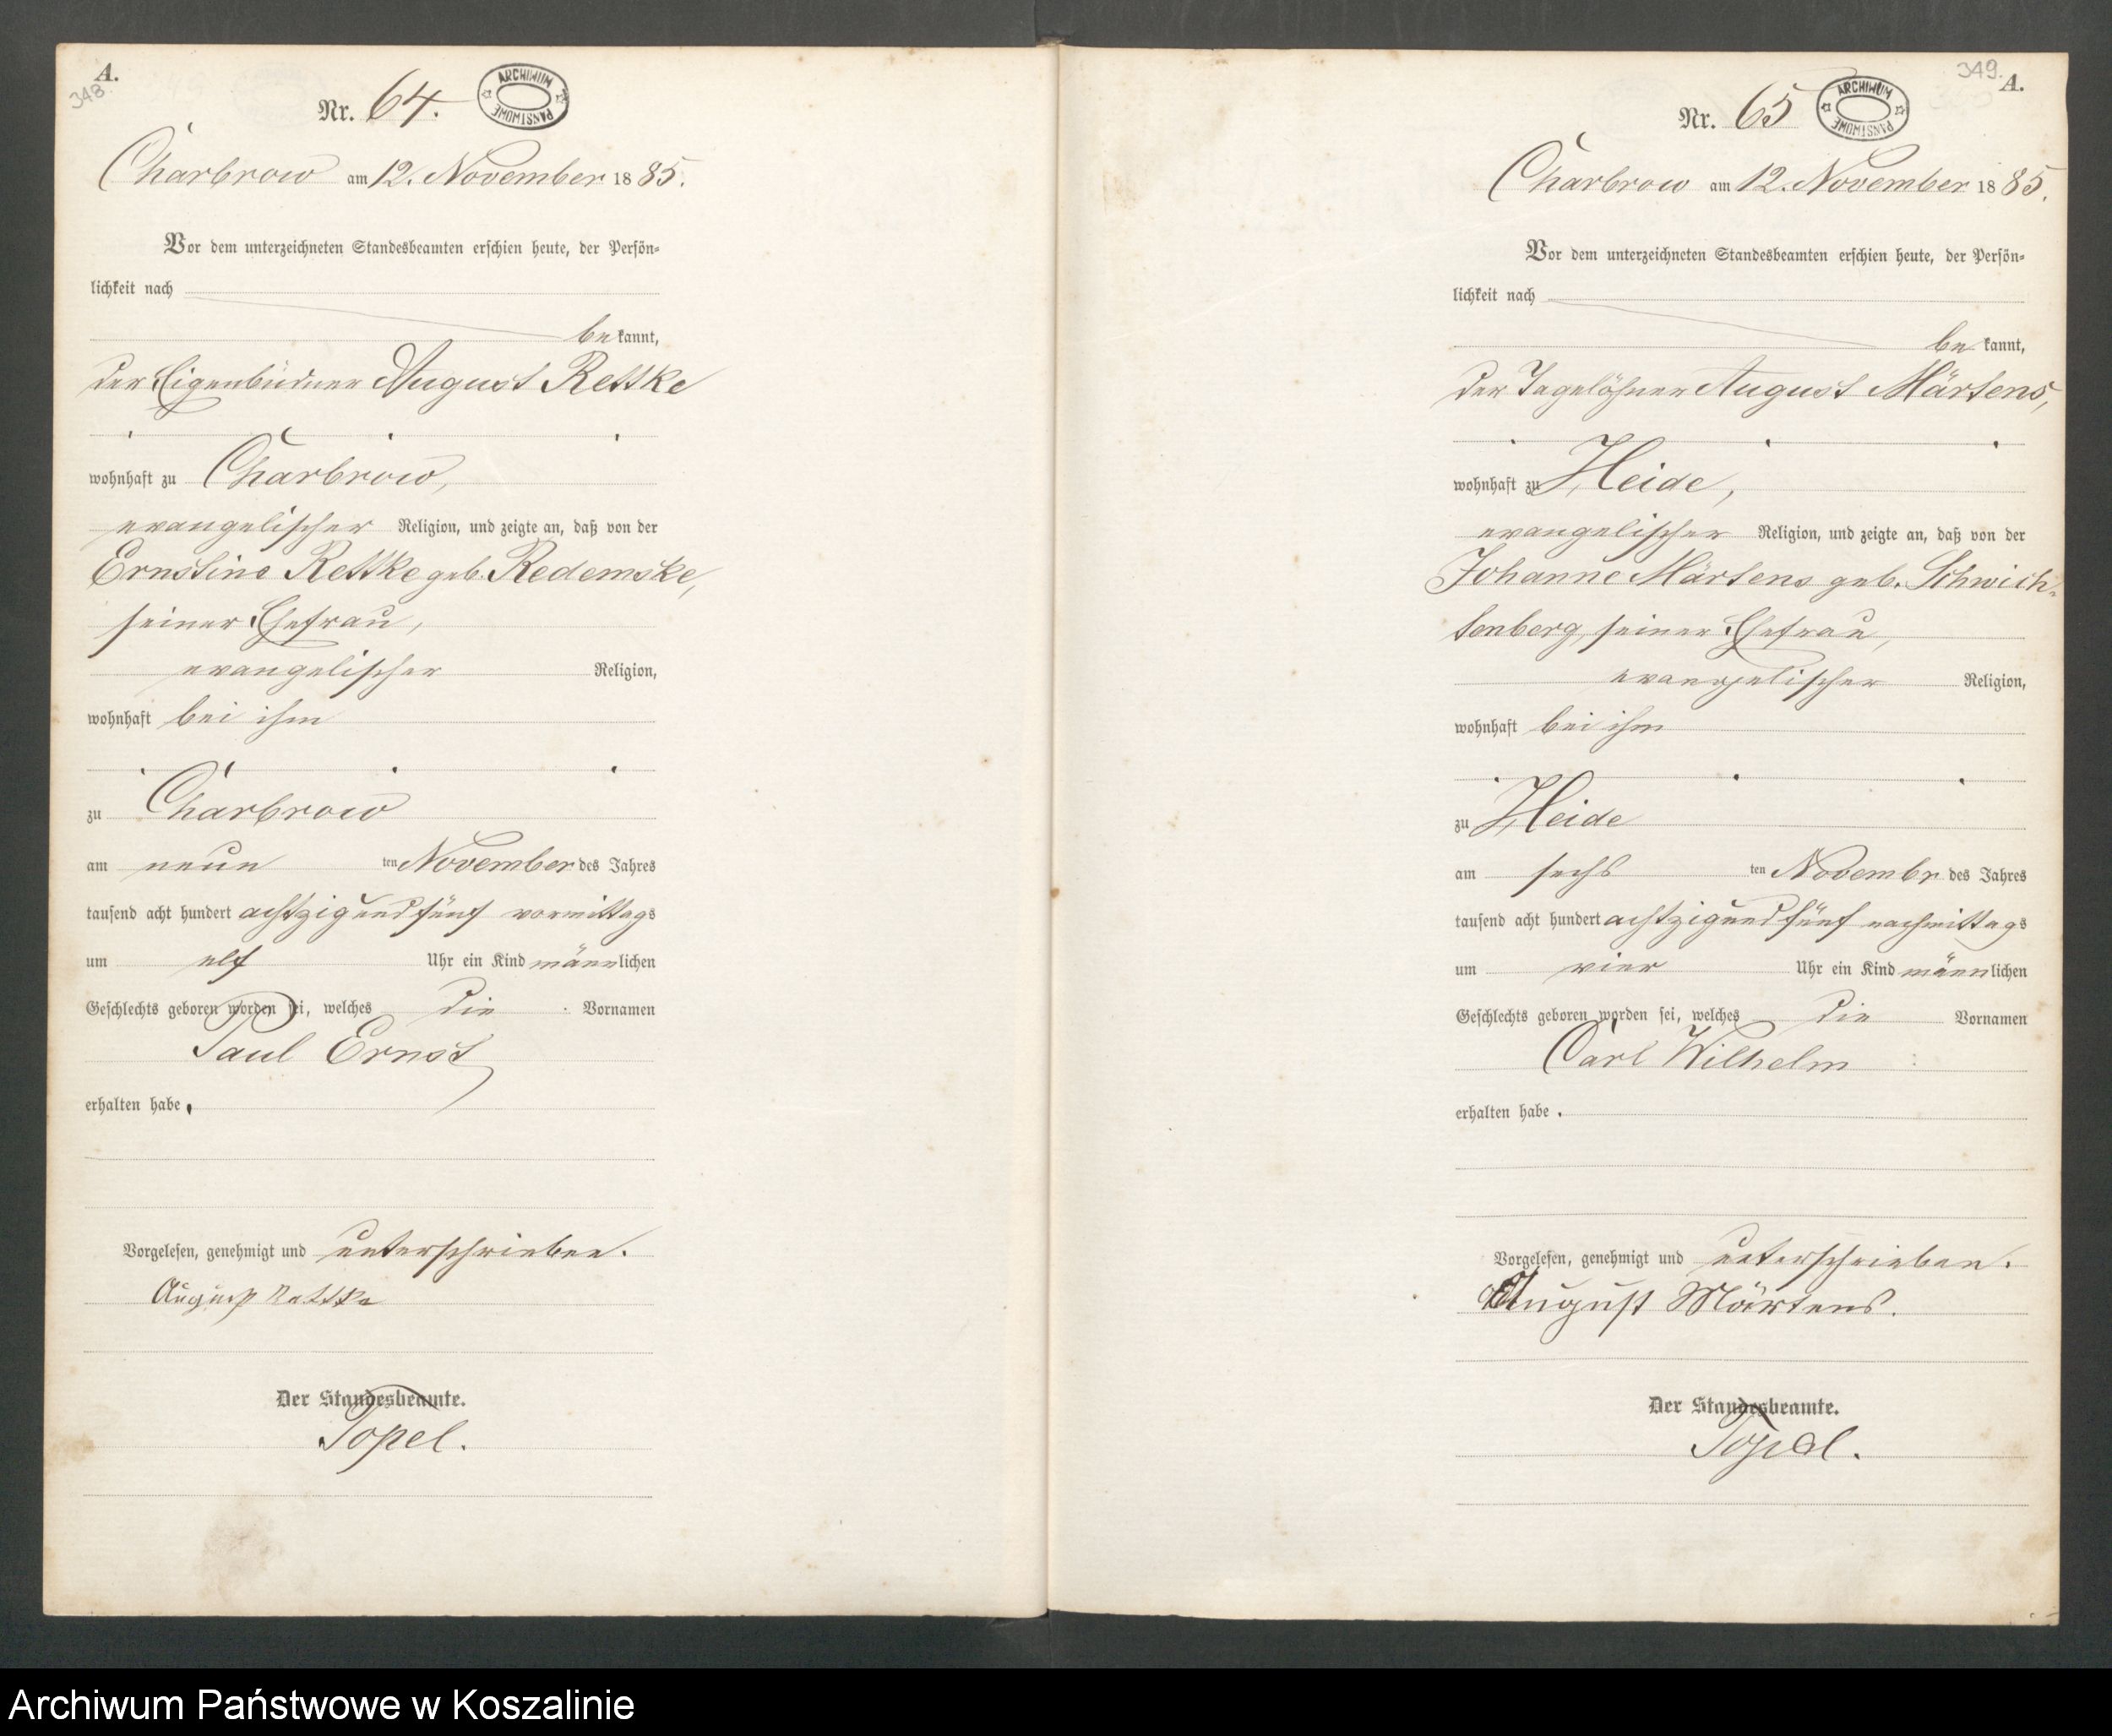 A.
348.
Nr. 64.
ARCHIWUM PAŃSTWOWE
Charbrow am 12. November 1885.
Vor dem unterzeichneten Standesbeamten erschien heute, der Persön-
lichkeit nach
be kannt,
der Eigenbüdner August Rettke
wohnhaft zu Charbrow,
evangelischer Religion, und zeigte an, daß von der
Ernstine Rettke geb. Redemske,
seiner Ehefrau,
evangelischer Religion,
wohnhaft bei ihm
zu Charbrow
am neun ten November des Jahres
tausend acht hundert achtzig und fünf vormittags
um elf Uhr ein Kind männlichen
Geschlechts geboren worden sei, welches die Vornamen
Paul Ernst
erhalten habe.
Vorgelesen, genehmigt und unterschrieben.
August Rettke
Der Standesbeamte.
Topel.
349.
A.
Nr. 65
ARCHIWUM PAŃSTWOWE
Charbrow am 12. November 1885.
Vor dem unterzeichneten Standesbeamten erschien heute, der Persön-
lichkeit nach
be kannt,
der Tagelöhner August Märtens,
wohnhaft zu Heide,
evangelischer Religion, und zeigte an, daß von der
Johanne Märtens geb. Schwich-
tenberg, seiner Ehefrau,
evangelischer Religion,
wohnhaft bei ihm
zu Heide
am sechs ten Novembr des Jahres
tausend acht hundert achtzig und fünf nachmittags
um vier Uhr ein Kind männlichen
Geschlechts geboren worden sei, welches die Vornamen
Carl Wilhelm
erhalten habe.
Vorgelesen, genehmigt und unterschrieben.
August Märtens.
Der Standesbeamte.
Topel.
Archiwum Państwowe w Koszalinie